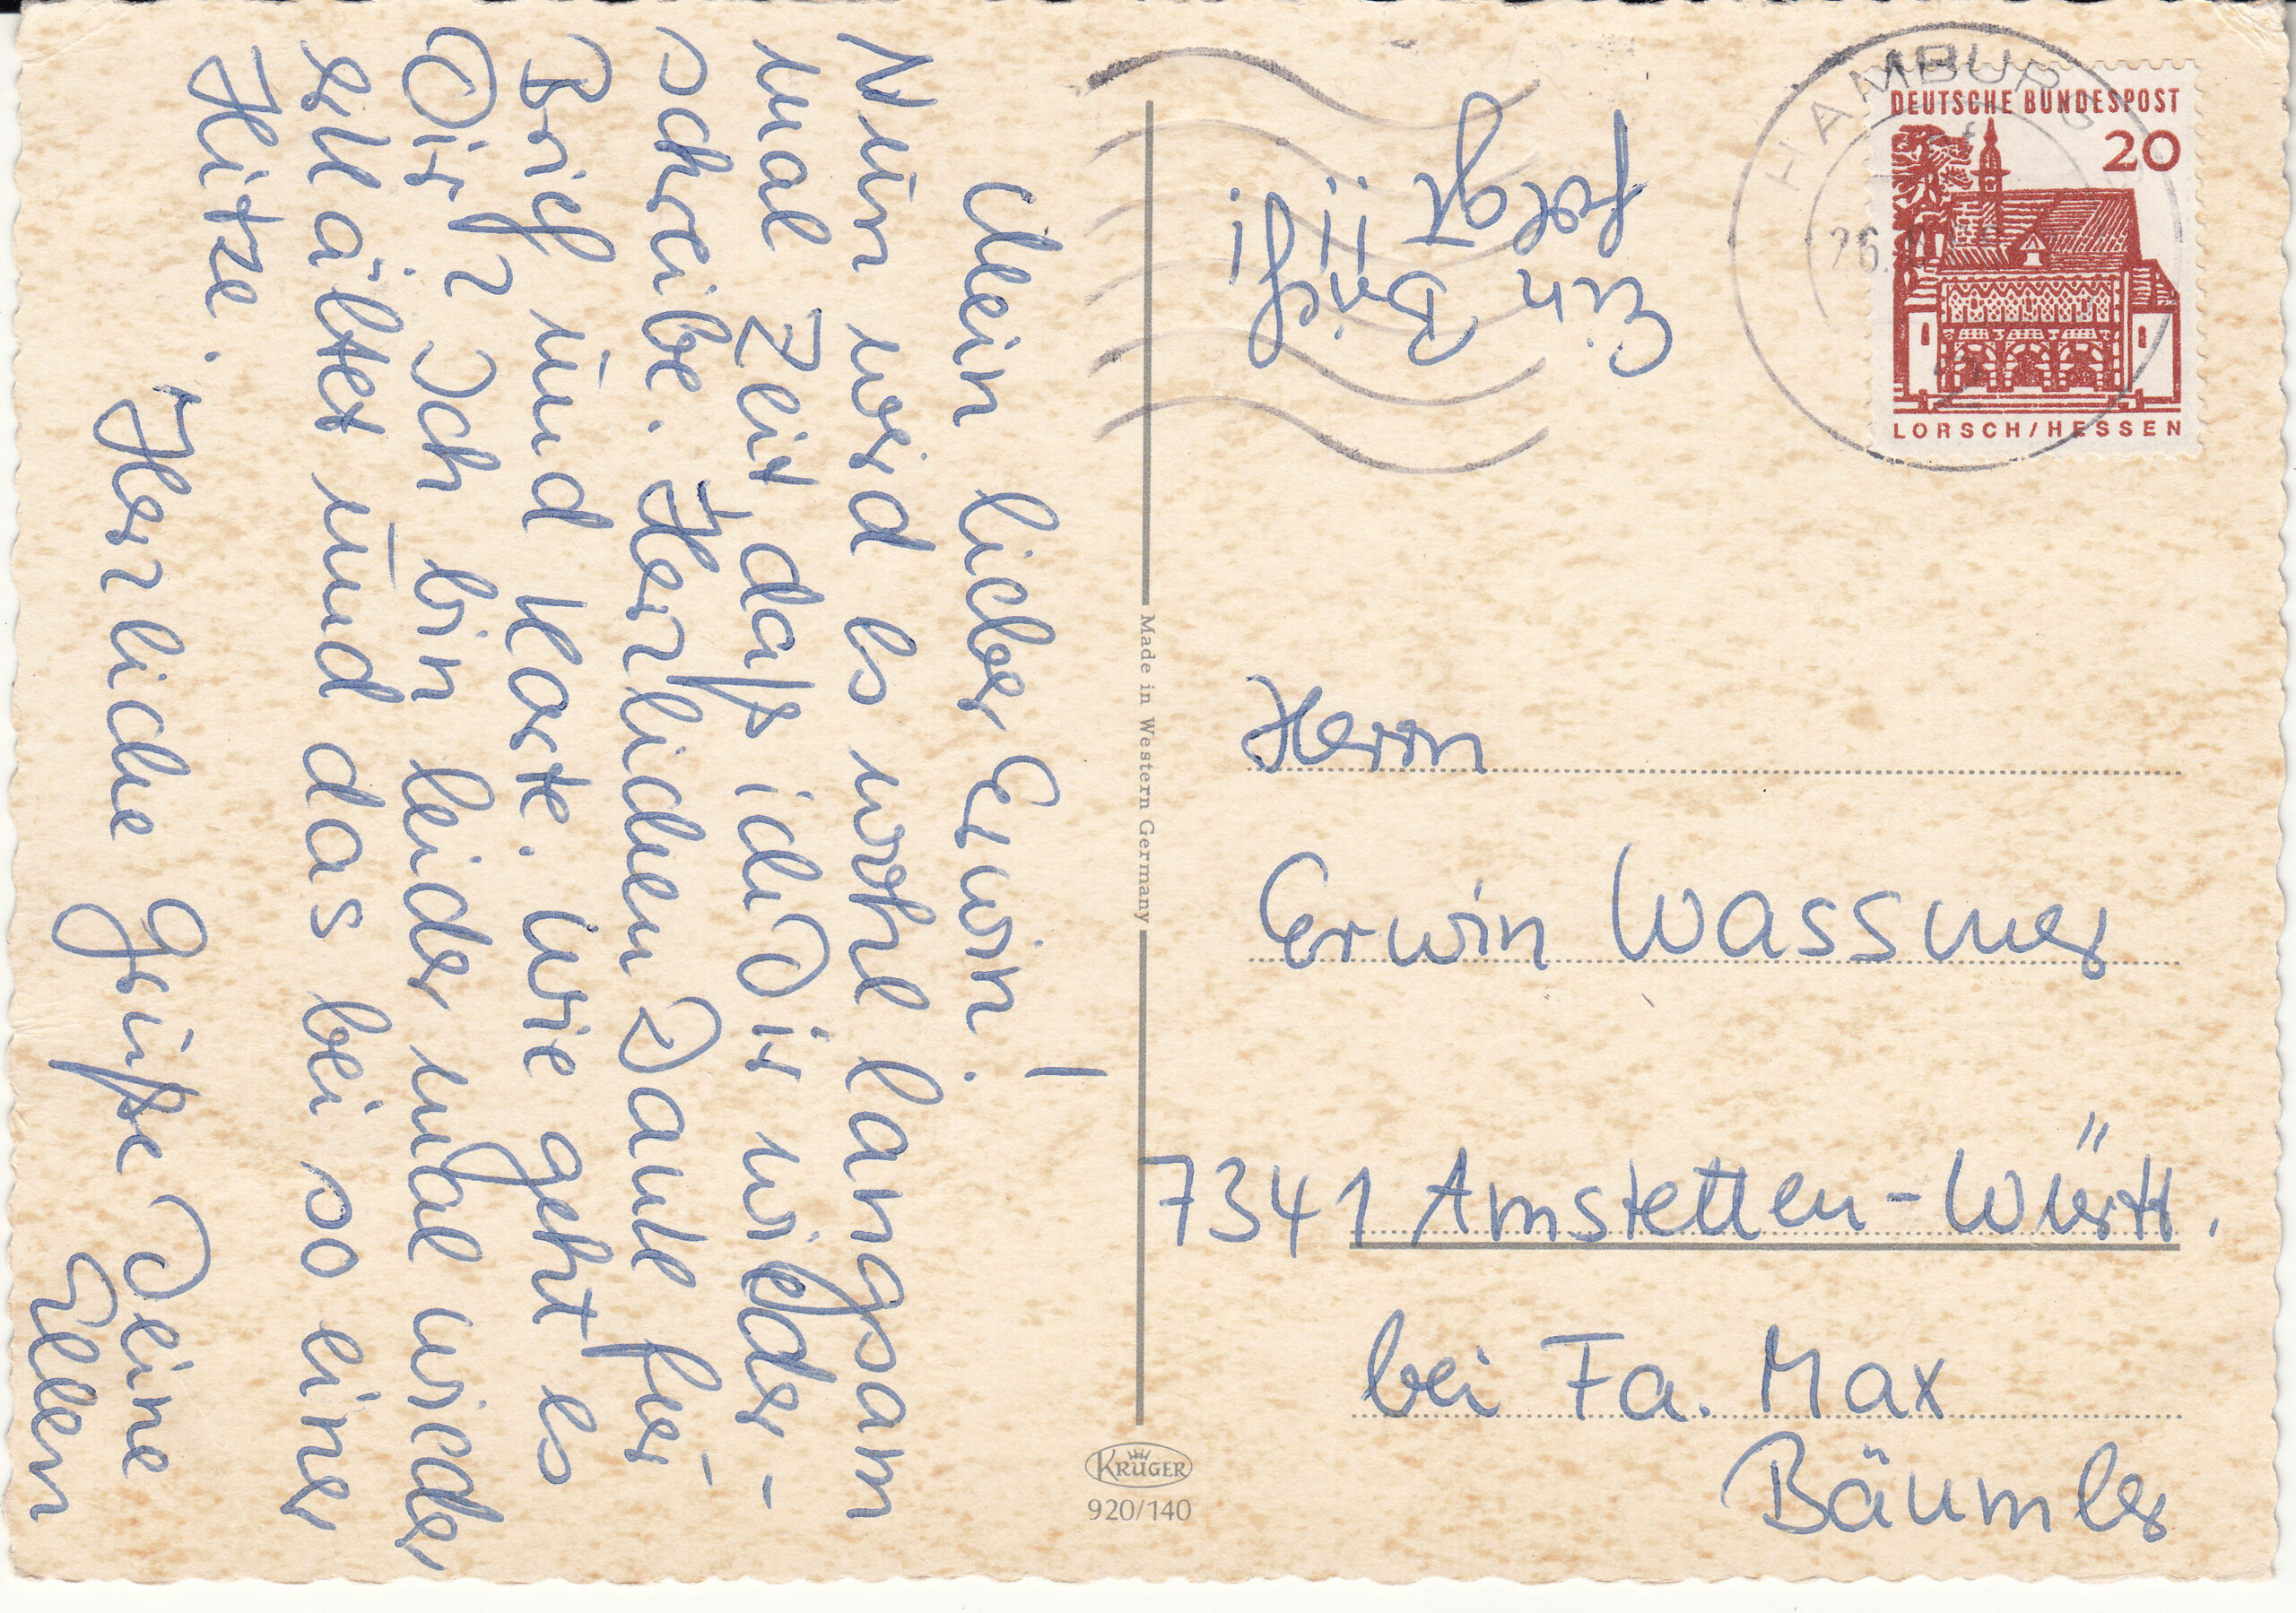 Mein lieber Erwin!
Nun wird es wohl langsam
mal Zeit daß ich Dir wieder-
schreibe. Herzlichen Dank für
Brief und Karte. Wie geht es
Dir? Ich bin leider mal wieder
erkältet und das bei so einer
Hitze.
Herzliche Grüße Deine
Ellen
Made in Western Germany
KRÜGER
920/140
HAMBURG
26.
DEUTSCHE BUNDESPOST
20
LORSCH/HESSEN
Herrn
Erwin Wassmer
7341 Amstetten-Württ.
bei Fa. Max
Bäumler